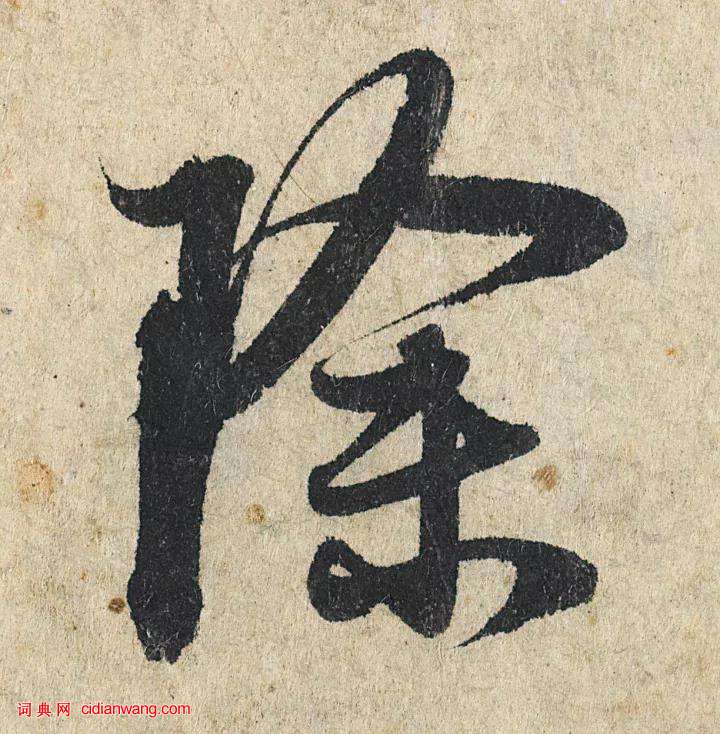 除
词典网 cidianwang.com